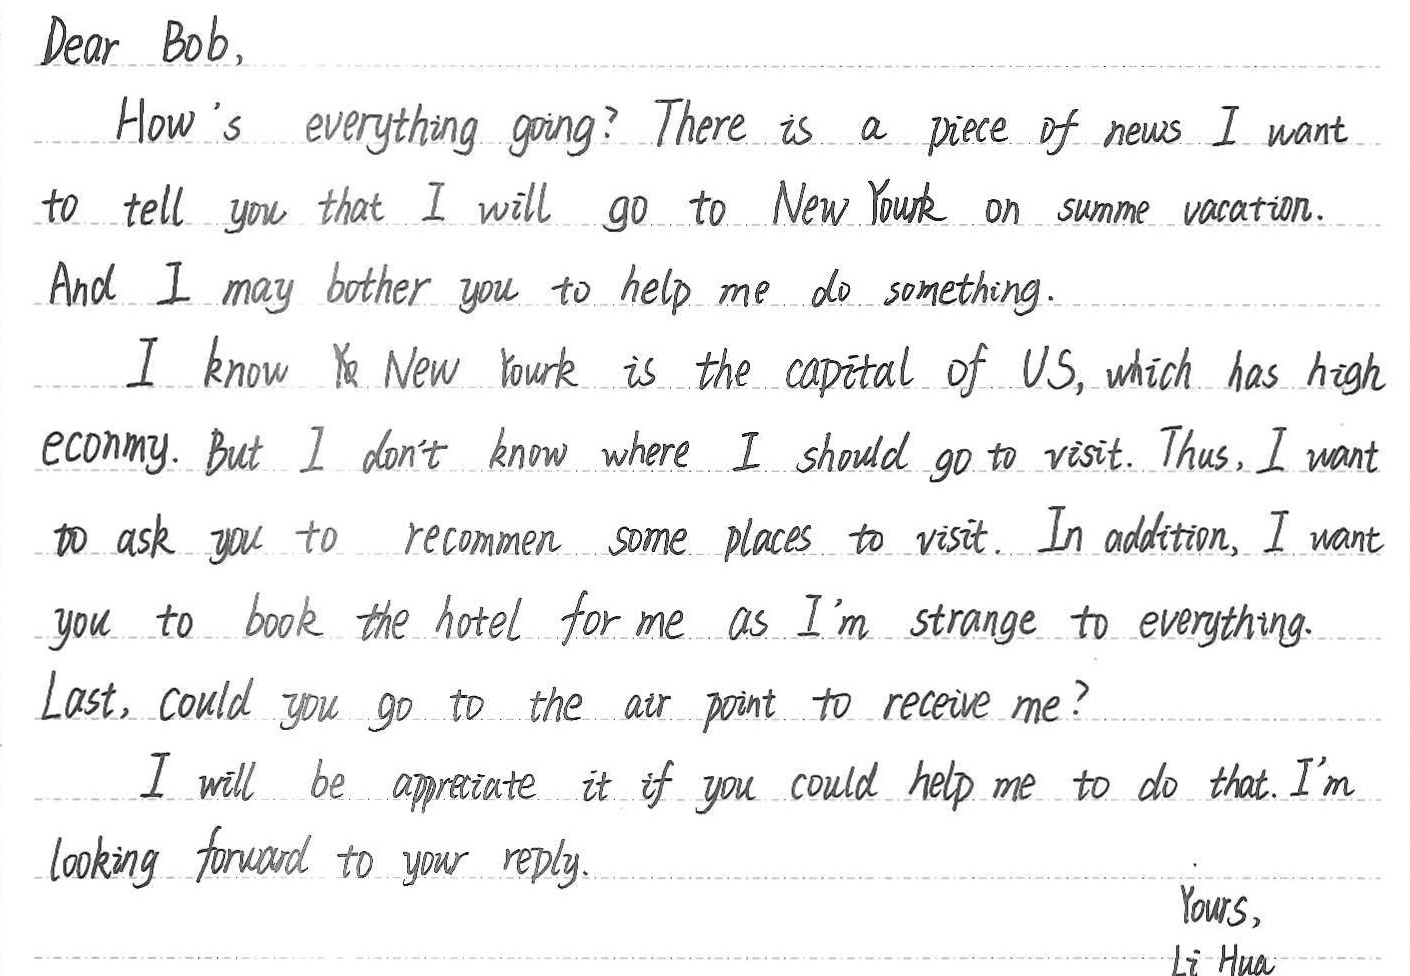 Dear Bob,
How's everything going? There is a piece of news I want
to tell you that I will go to New Yourk on summe vacation.
And I may bother you to help me do something.
I know New Yourk is the capital of US, which has high
econmy. But I don't know where I should go to visit. Thus, I want
to ask you to recommen some places to visit. In addition, I want
you to book the hotel for me as I'm strange to everything.
Last, could you go to the air point to receive me?
I will be appreciate it if you could help me to do that. I'm
looking forward to your reply.
Yours,
Li Hua